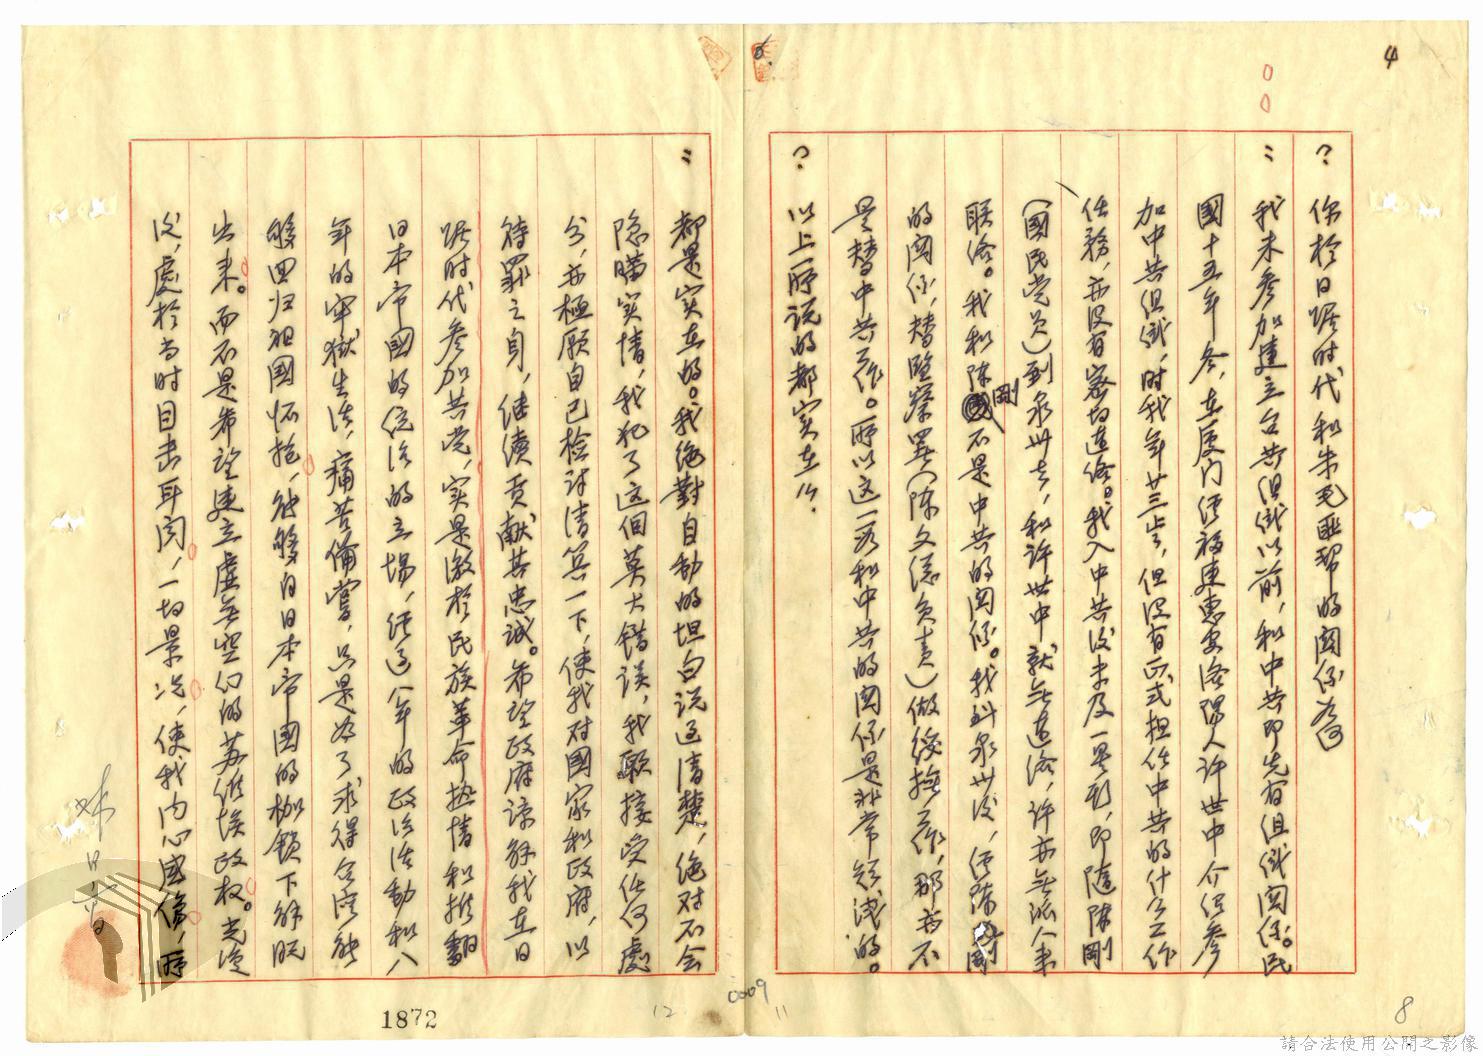 4
?你於日踞时代和朱毛匪帮的関係為何
:我未參加建立台共组織以前，和中共即先有组織関係。民
國十五年冬，在厦门經福建惠安洛陽人许世中介绍參
加中共组織，时我年廿三岁，但没有正式担任中共的什么工作
任務，亦没有密切連络。我入中共後未及一星期，即隨陳剛
(國民党员)到泉州去，和許世中就無連络，许亦無派人来
联络。我和陳剛不是中共的関係。我到泉州後，經陳剛
的関係，替監察署(陳文總负责)做緩撫工作，那亦不
是替中共工作。所以这一段和中共的関係是非常短浅的。
?以上所说的都实在么.
:都是实在的。我绝對自動的坦白说过清楚，绝对不会
隐瞞实情，我犯了这個莫大错误，我願接受任何處
分，亦極願自己检讨清算一下，使我对國家和政府，以
待罪之身，继续贡献其忠诚。希望政府谅解我在日
踞时代參加共党，实是激於民族革命热情和推翻
日本帝國的统治的立場，经过八年的政治活動和八
年的牢獄生活，痛苦備嘗，只是为了求得台湾能
够回归祖國怀抱，能够自日本帝国的枷鎖下解脱
出来。而不是希望建立虚無空幻的苏維埃政权。光復
後，處於当时目击耳闻，一切景况，使我内心感傷，所
1872
0009
12
11
8
請合法使用公開之影像